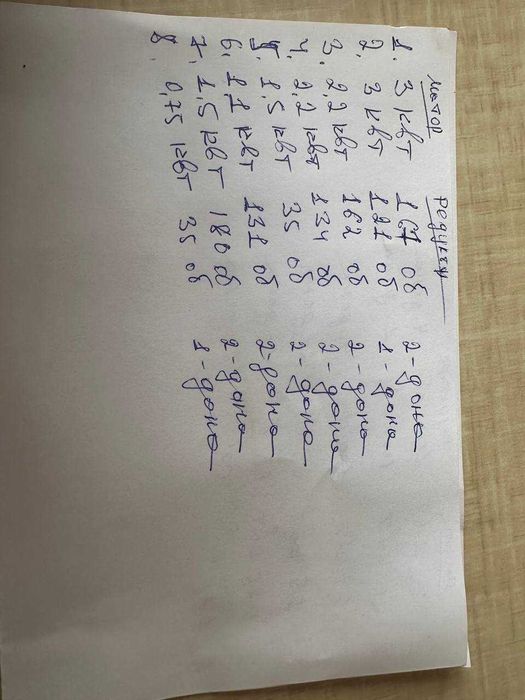 мотор
1. 3 квт 167 об 2-дона
2. 3 квт 191 об 1-дона
3. 2,2 квт 162 об 2-дона
4. 2,2 квт 134 об 2-дона
5. 1,5 квт 35 об 2-дона
6. 1,1 квт 131 об 2-дона
7. 1,5 квт 180 об 2-дона
8. 0,75 квт 35 об 1-дона